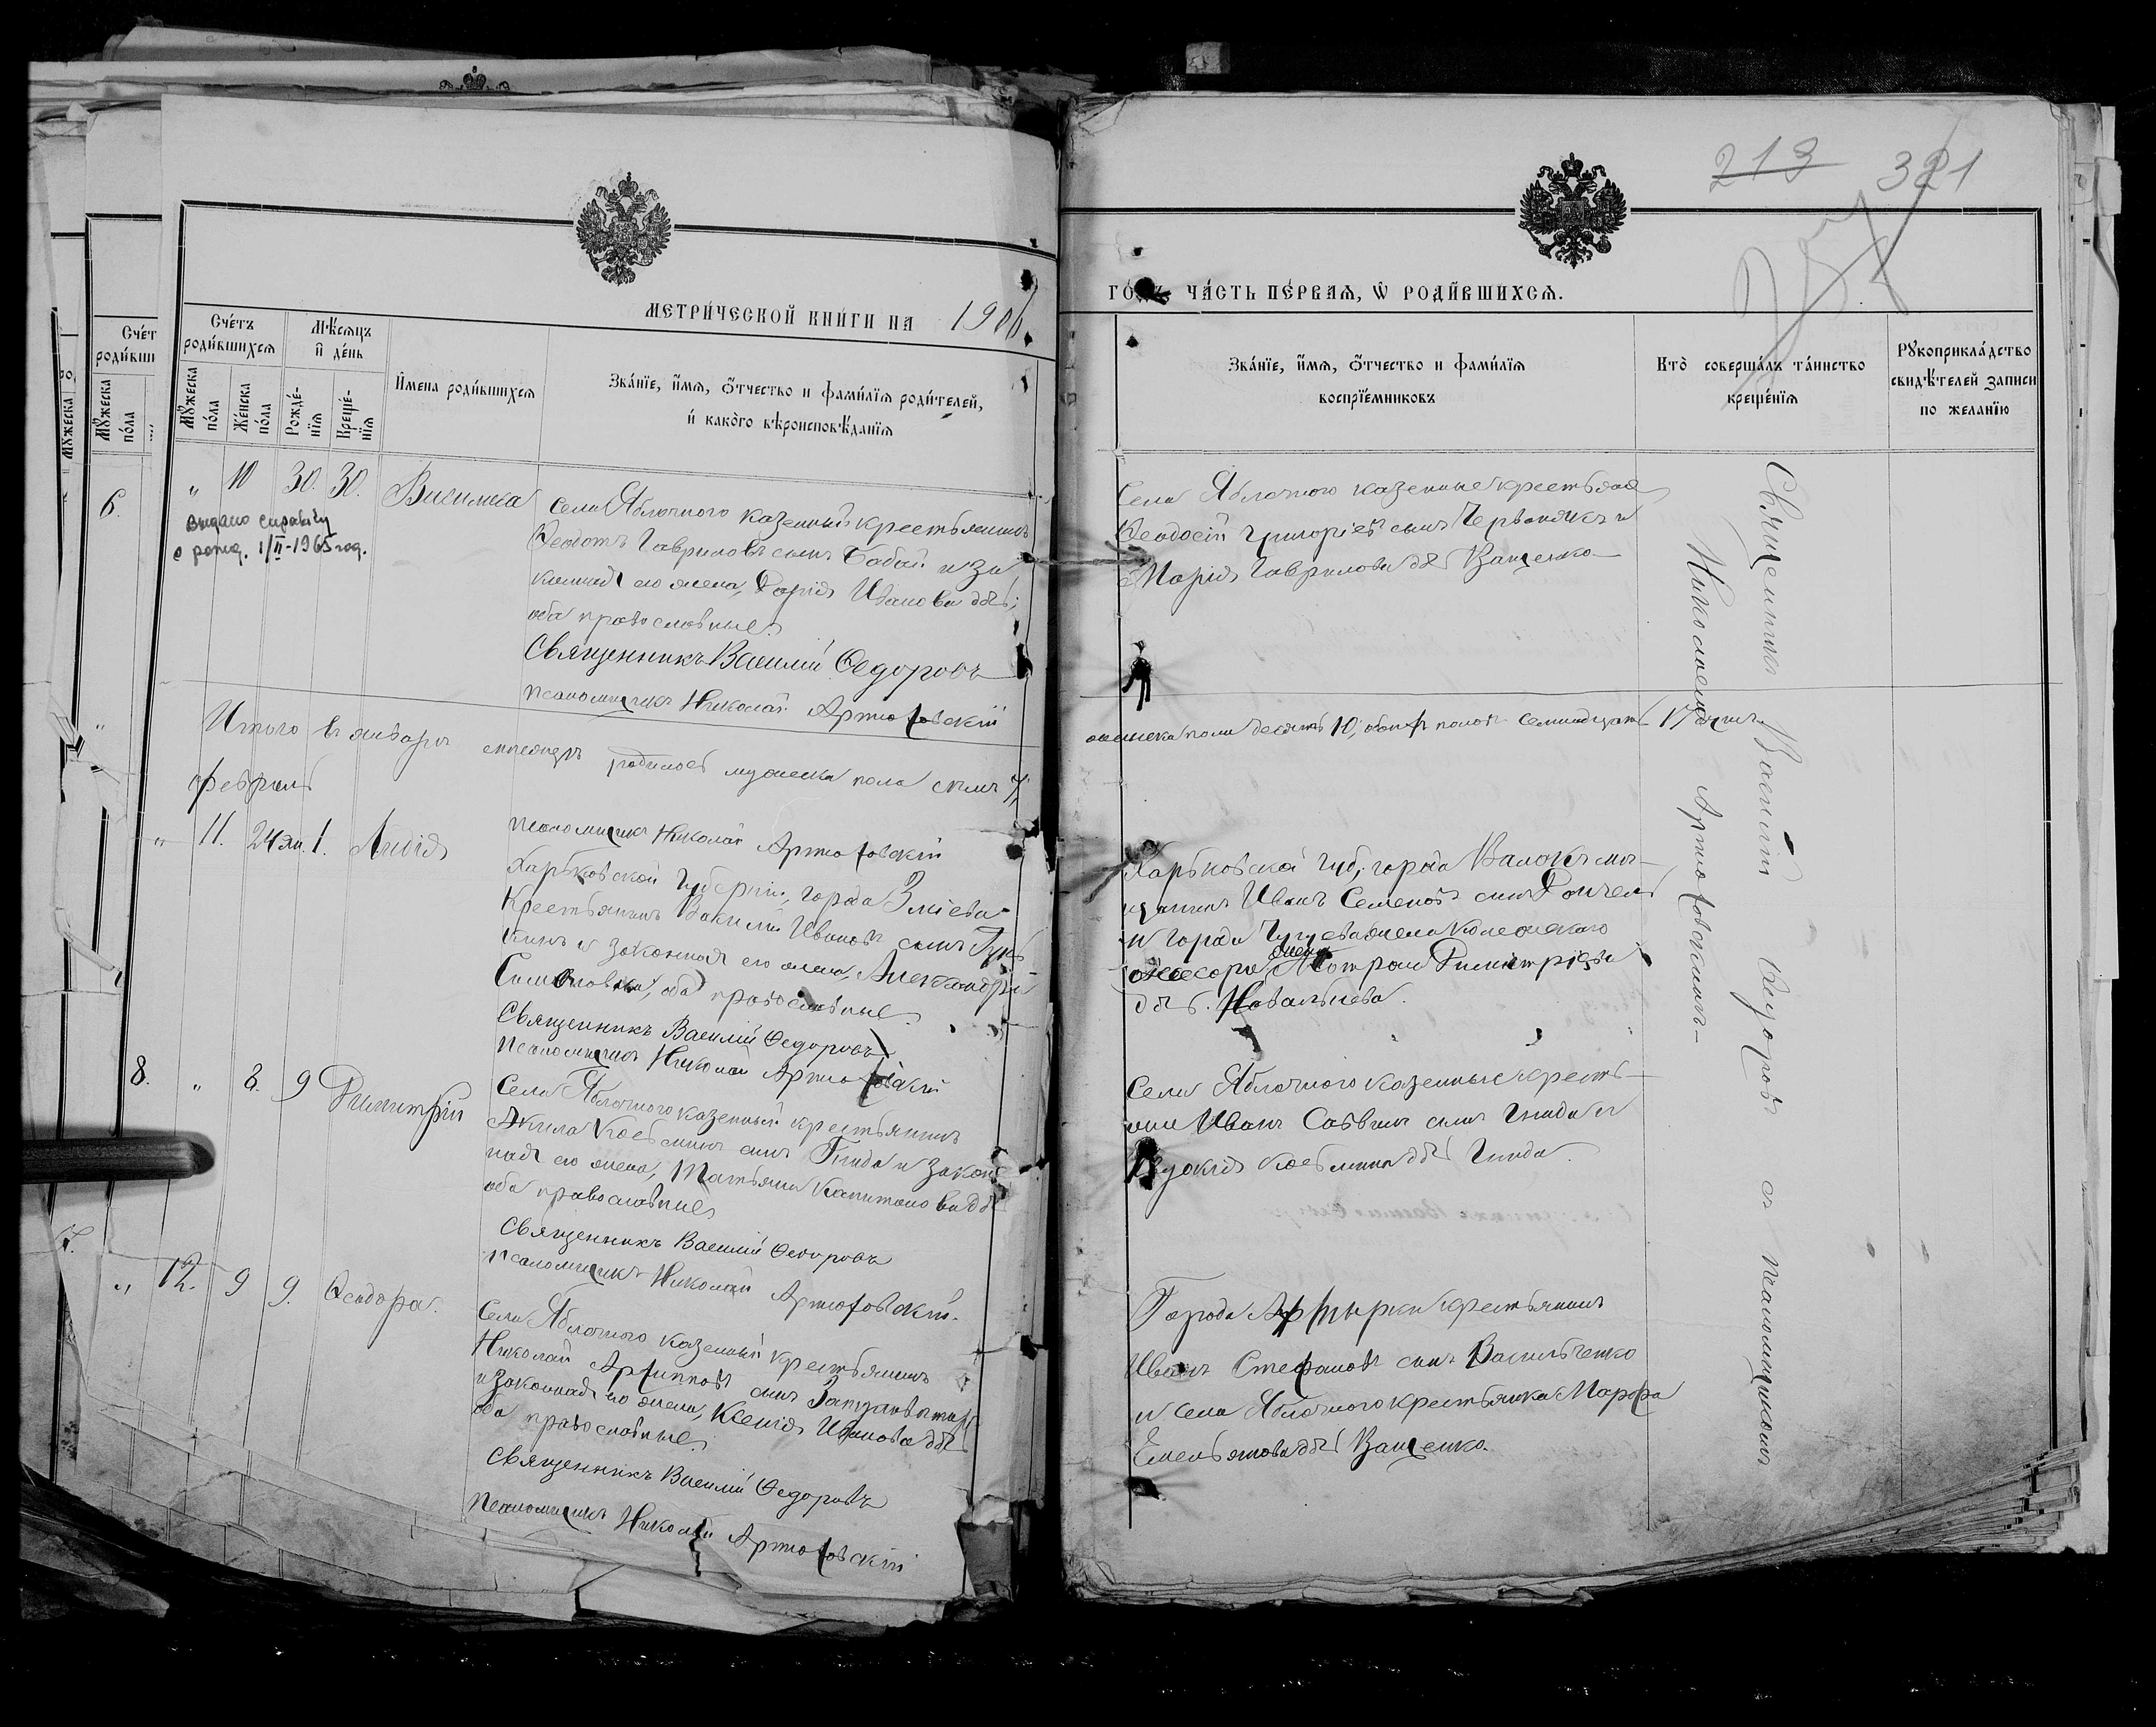 213 321
МЕТРИ́ЧЕСКОЙ КНИ́ГИ НА 1906.
ГО́ДЪ, ЧА́СТЬ ПЕ́РВАѦ, Ѡ РОДИ́ВШИХСѦ.
Сче́тъ роди́вшихсѧ
Мѣ́сѧцъ и҆ де́нь
Мꙋ́жеска по́ла
Же́нска по́ла
Рожде́нїѧ
Креще́нїѧ
И҆мена роди́вшихсѧ
Зва́нїе, и҆́мѧ, ѻ҆́тчество и фами́лїѧ роди́телей,
и҆ како́го вѣроисповѣ́данїѧ
Зва́нїе, и҆́мѧ, ѻ҆́тчество и фами́лїѧ
воспрїе́мниковъ
Кто̀ соверша́лъ та́инство
креще́нїѧ
Рꙋкоприкла́дство
свидѣ́телей записи
по жела́нїю
" 10 30. 30.
выдано справку
о рожд. 1/II-1965 год.
Села Яблочного казенный крестьянинъ
Ѳеодотъ Гавриловъ сынъ Бабай и за
конная его жена, Дарія Иванова дчь;
оба православные.
Священникъ Василій Ѳедоровъ
Псаломщикъ Николай Артюховскій
Села Яблочного казенные крестьяне
Ѳеодосій Григоріевъ сынъ Червонякъ и
Марія Гаврилова дчь Ващенко
Итого въ январѣ мѣсяцѣ родилось мужеска пола семь 7,
женска пола десять 10, обоего полов семнадцать 17 душъ.
Февраль
" 11. 24 ян. 1. Лидія
Псаломщикъ Николай Артюховскій
Харьковской губерніи, города Зміева
Крестьянинъ Василій Ивановъ сынъ
и законная его жена, Александра
оба православные.
Священникъ Василій Ѳедоровъ
Псаломщикъ Николай Артюховскій
Харьковской губ, города Валокъ мѣ-
щанинъ Иванъ Семеновъ сынъ
и города Чугуева жена Колежскаго
жена
Димитріева
дчь.
8. " 8. 9 Димитрій
Села Яблочного казенный крестьянинъ
Акила Косьминъ сынъ Гнида и закон
ная его жена, Татьяна Капитонова дчь
оба православные
Священникъ Василій Ѳедоровъ
Псаломщикъ Николай Артюховскій.
Села Яблочного казенные кресть-
яне Иванъ Саввинъ сынъ Гнида и
Евдокія Косьмина дчь Гнида.
" 12. 9 9. Ѳеодора.
Села Яблочного казенный крестьянинъ
Николай Архиповъ сынъ
и законная его жена, Ксенія Иванова дчь
оба православные.
Священникъ Василій Ѳедоровъ
Псаломщикъ Николай Артюховскій
Города Ахтырки крестьянинъ
Иванъ Стефановъ сынъ Васильченко
и села Яблочного крестьянка Марфа
Емельянова дчь Ващенко.
Священникъ Василій Ѳедоровъ съ псаломщикомъ
Николаемъ Артюховскимъ